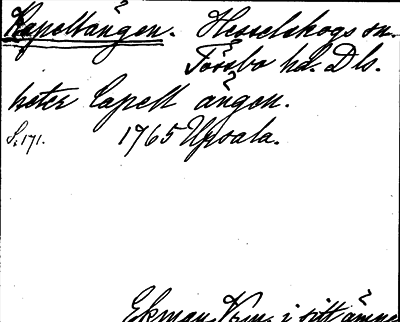 Kapellängen. Hesselskogs sn.
Tössbo hd. Dls.
heter Capell ängen.
S. 171. 1765 Upsala.
Ekman, i sitt ämne